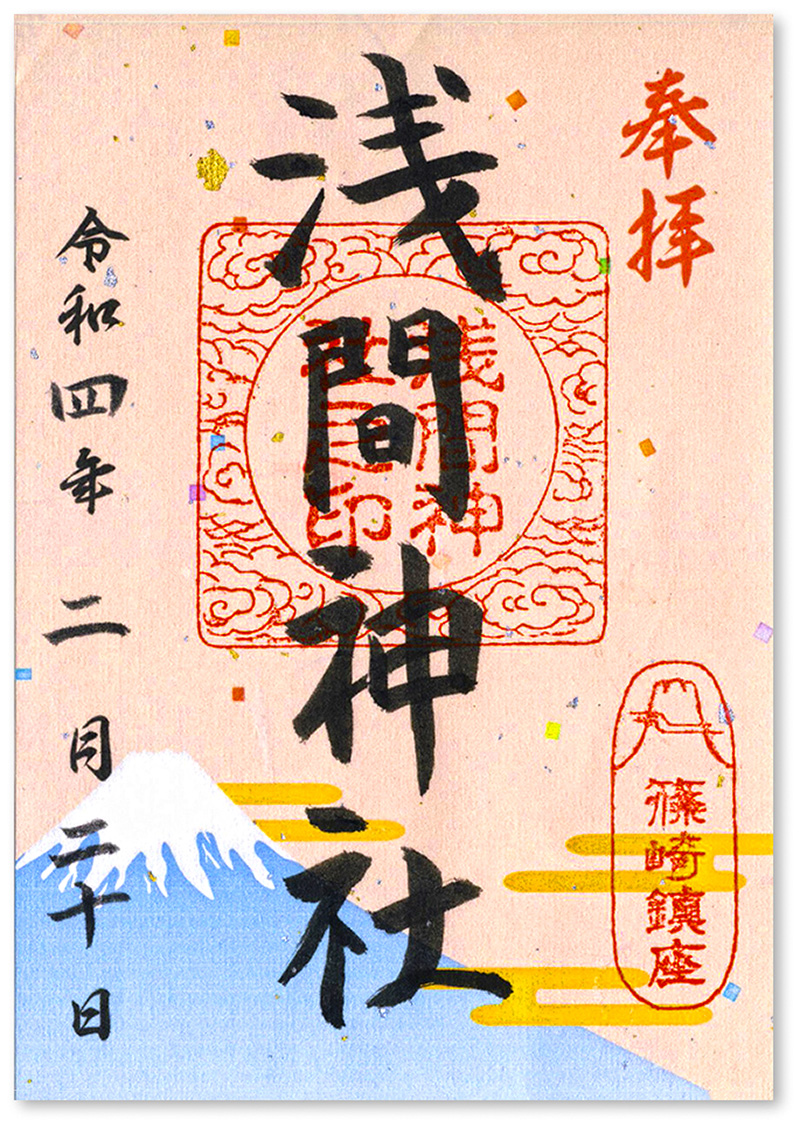 奉拝
浅間神社
浅間神
社之印
篠崎鎮座
令和四年 二月二十日